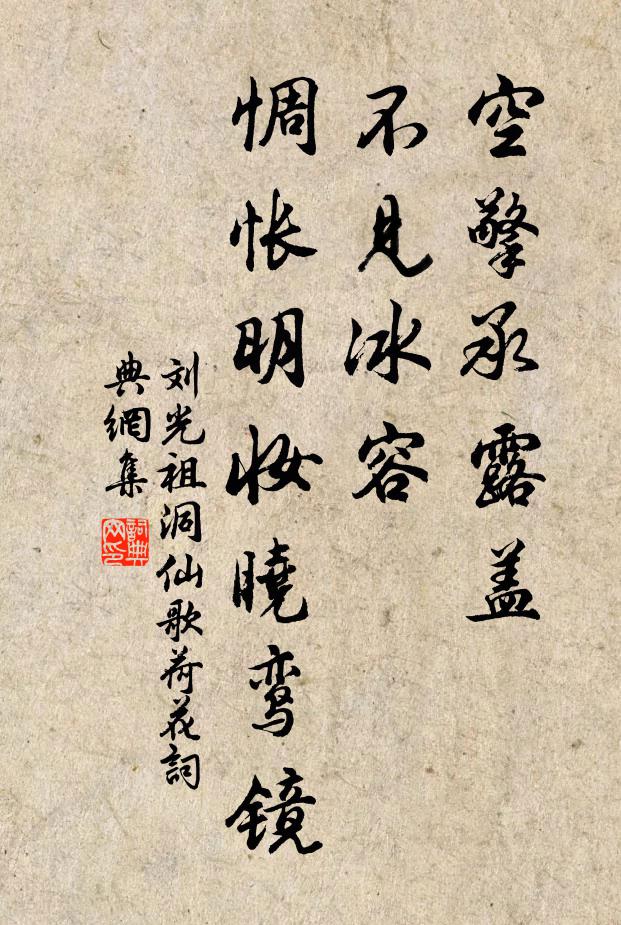 空擎承露盖
不见冰容
惆怅明妆晓鸾镜
刘光祖洞仙歌荷花詞
典網集
詞典
网印